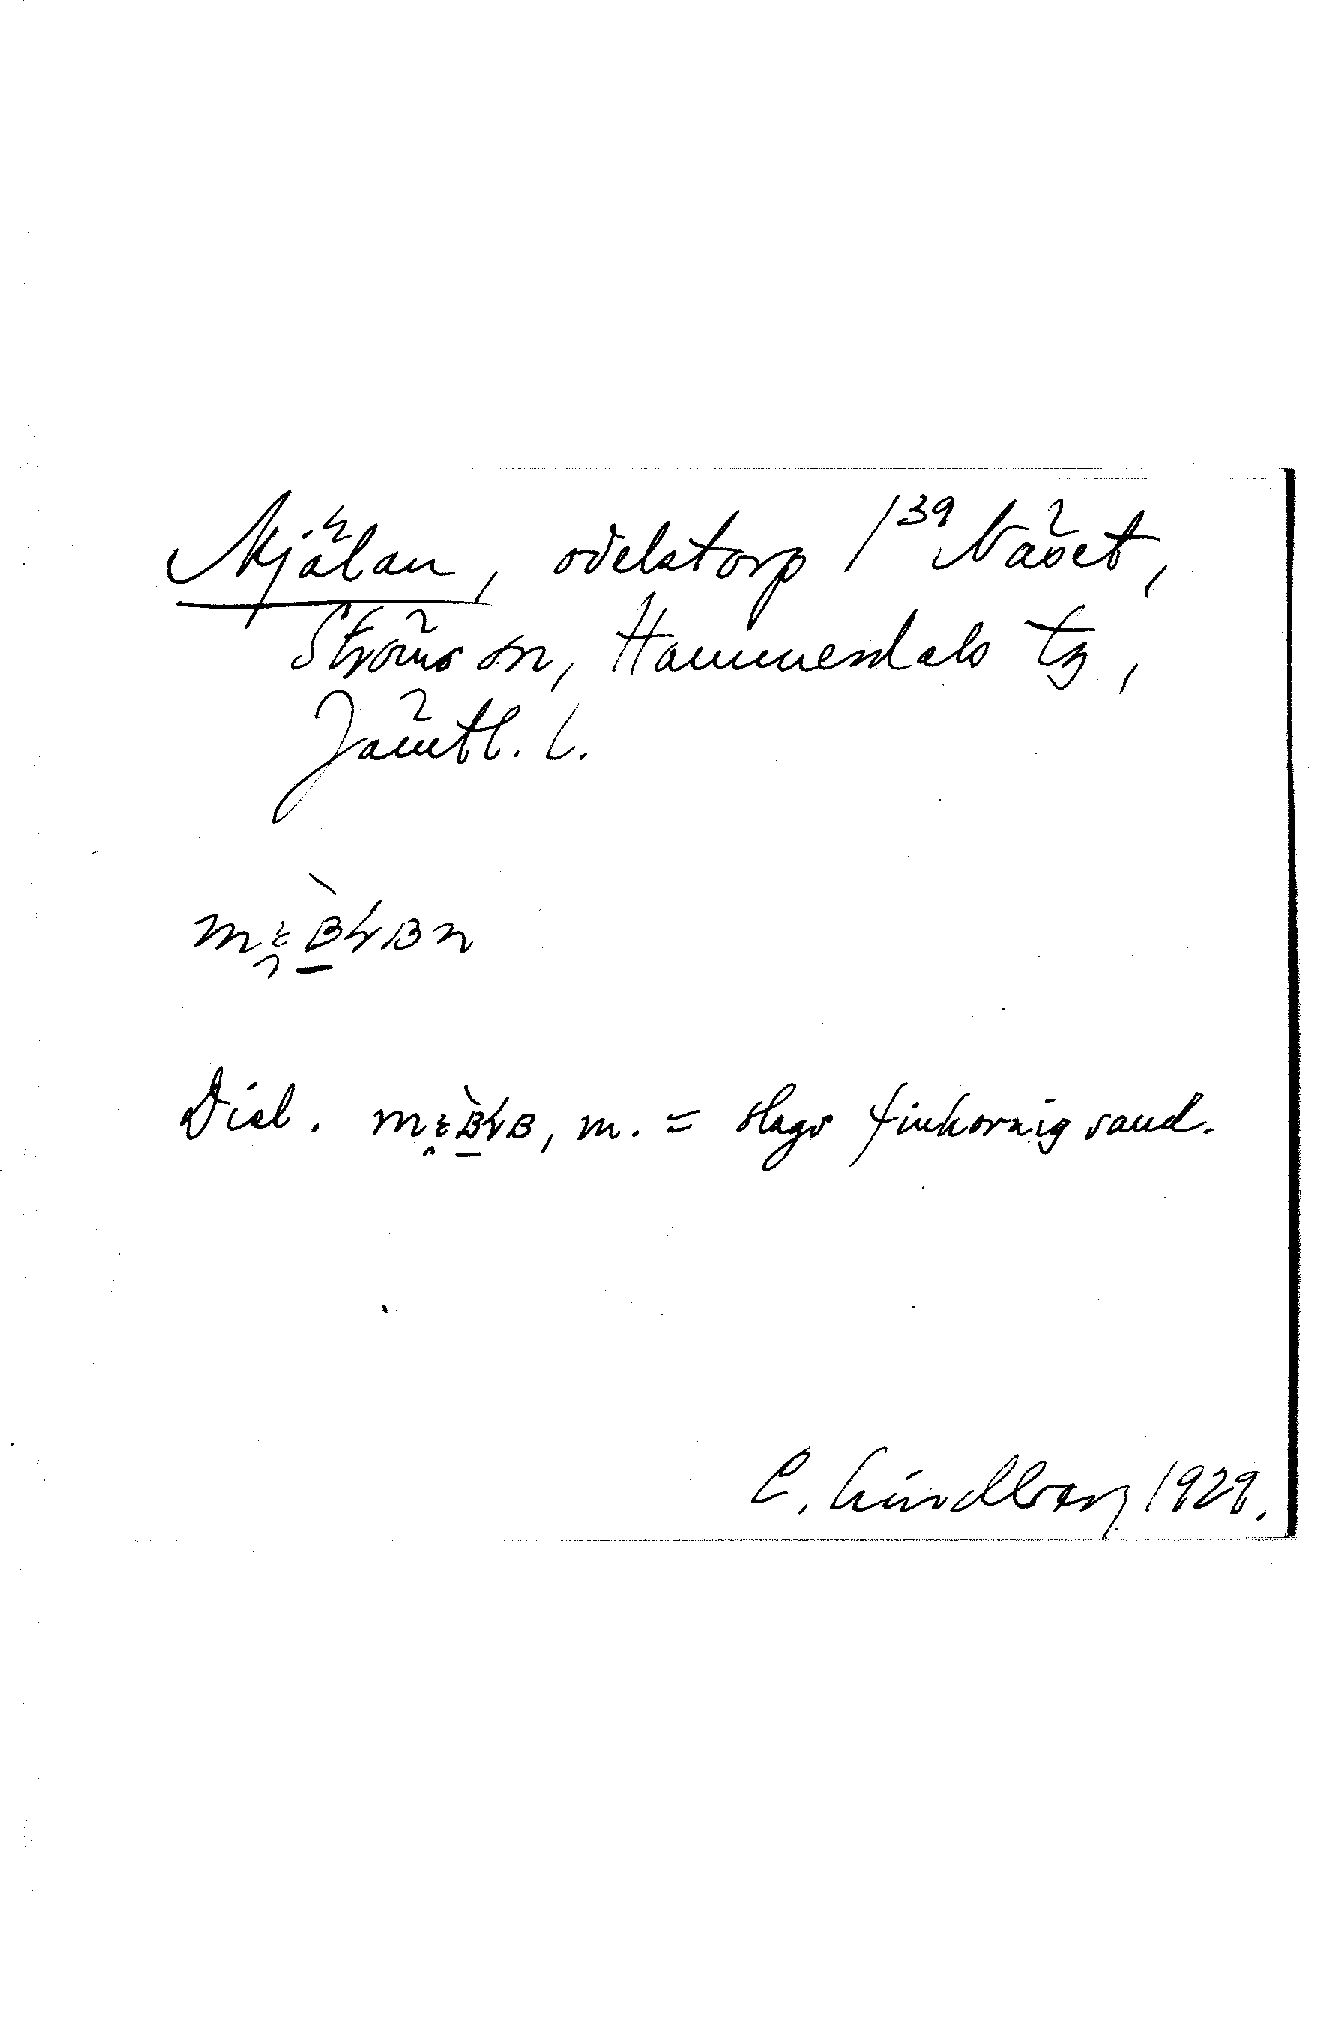 Mjälan, odelstorp 1³⁹ Näset,
Ströms sn, Hammerdals tg,
Jämtl. l.
Dial. m. = slags finkornig sand.
C. Lindberg 1929.